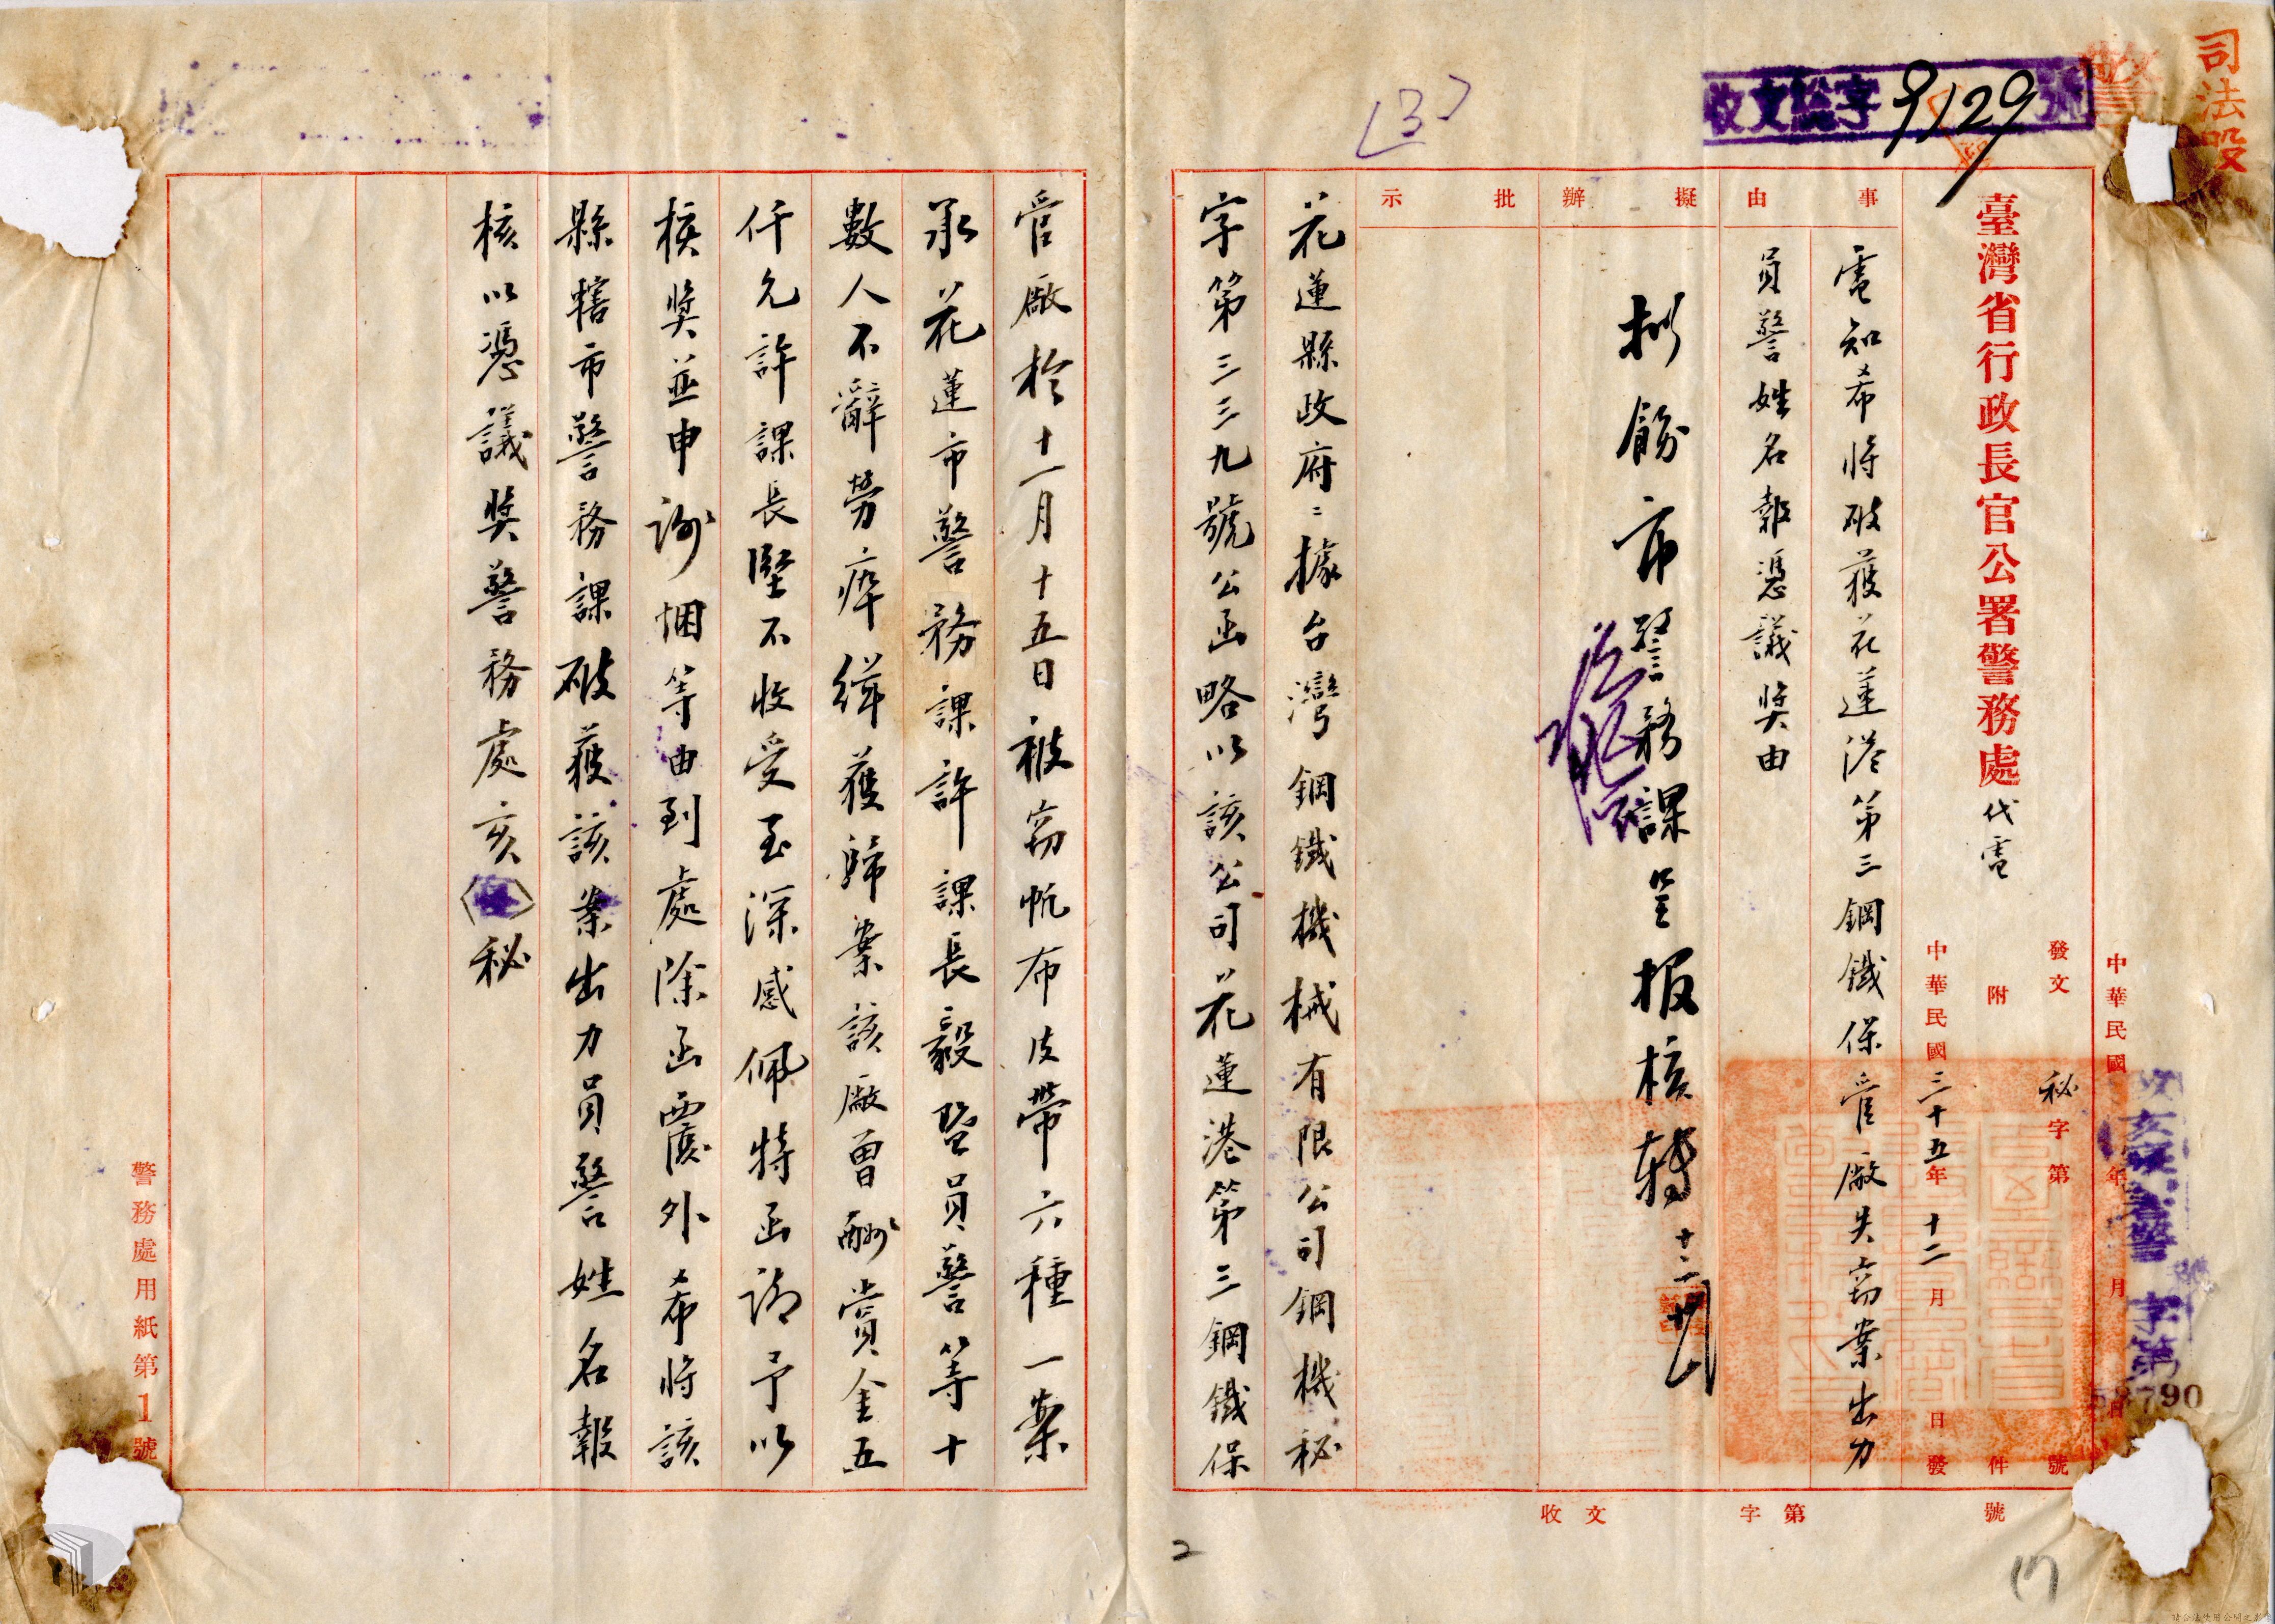 司法股
收文總字9129號
中華民國 年 月 日
58790
臺灣省行政長官公署警務處代電
發文 秘字第 號
附 件
中華民國三十五年十二月 日發
事由
電知希將破獲花蓮港第三鋼鐵保管廠失竊案出力
員警姓名報憑議奖由
擬辦
拟飭市警務課呈报核轉
批示
花蓮縣政府:據台灣鋼鐵機械有限公司鋼機秘
字第三三九號公函略以該公司花蓮港第三鋼鐵保
管廠於十一月十五日被竊帆布皮帶六種一案
承花蓮市警務課許課長毅暨員警等十
數人不辭勞瘁緝獲歸案該廠曾酬賞金五
仟元許課長堅不收受至深感佩特函請予以
核奖並申謝悃等由到處除函覆外希將該
縣轄市警務課破獲該案出力員警姓名報
核以憑議奖警務處亥 秘
警務處用紙第1號
收文 字第 號
(3)
2
(7)